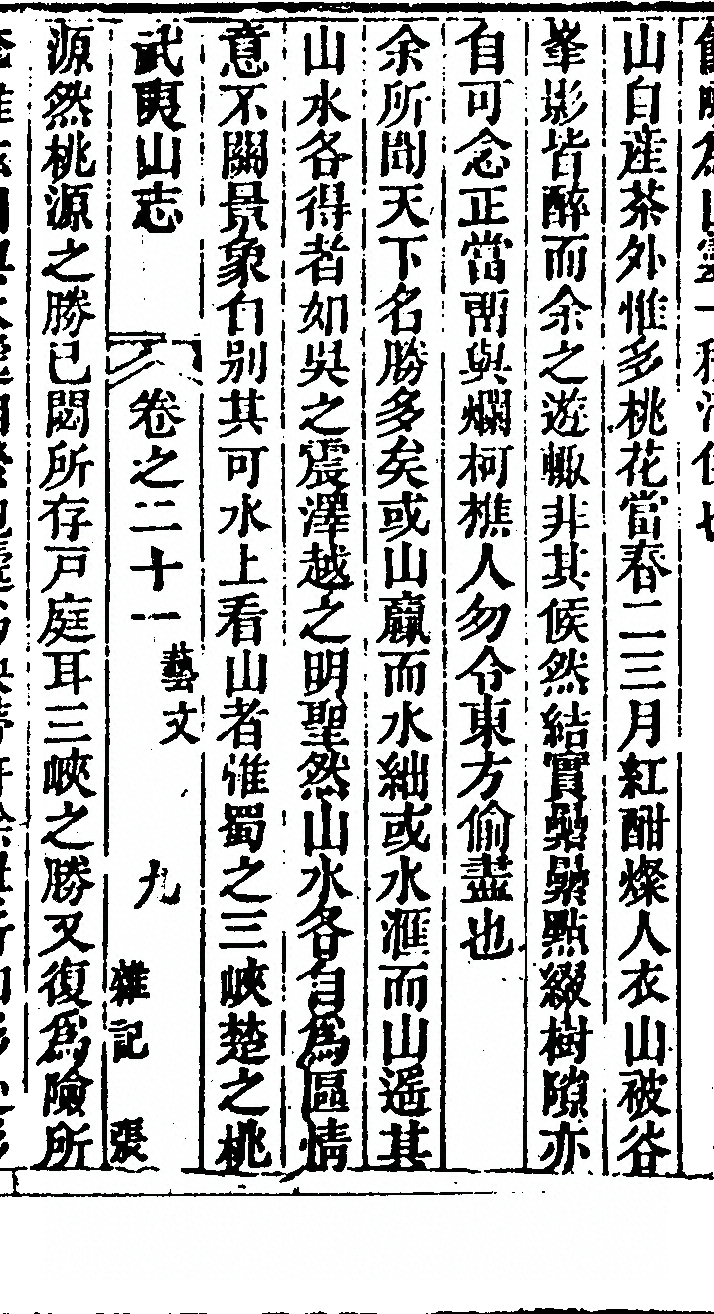 山自産茶外惟多桃花當春二三月紅酣燦人衣山破谷
峯影皆醉而余之遊輙非其候然結實纍纍點綴樹隙亦
自可念正當留與爛柯樵人勿令東方偷盡也
余所聞天下名勝多矣或山贏而水絀或水滙而山遥其
山水各得者如吳之震澤越之明聖然山水各自為區情
意不關景象自别其可水上看山者惟蜀之三峽楚之桃
武夷山志 卷之二十一 藝文 九 雜記 張
源然桃源之勝已閟所存戸庭耳三峽之勝又復為險所